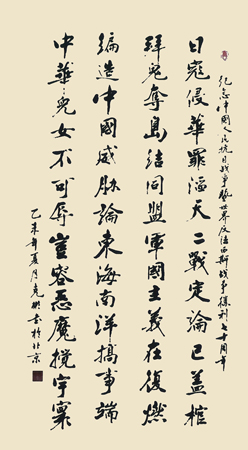 纪念中國人民抗日战争暨世界反法西斯战争勝利七十周年
日寇侵華罪滔天二战定論已盖棺
拜鬼奪島結同盟軍國主義在復燃
編造中國威胁論東海南洋搞事端
中華兒女不可辱豈容惡魔搅宇寰
乙未年夏月克书於北京